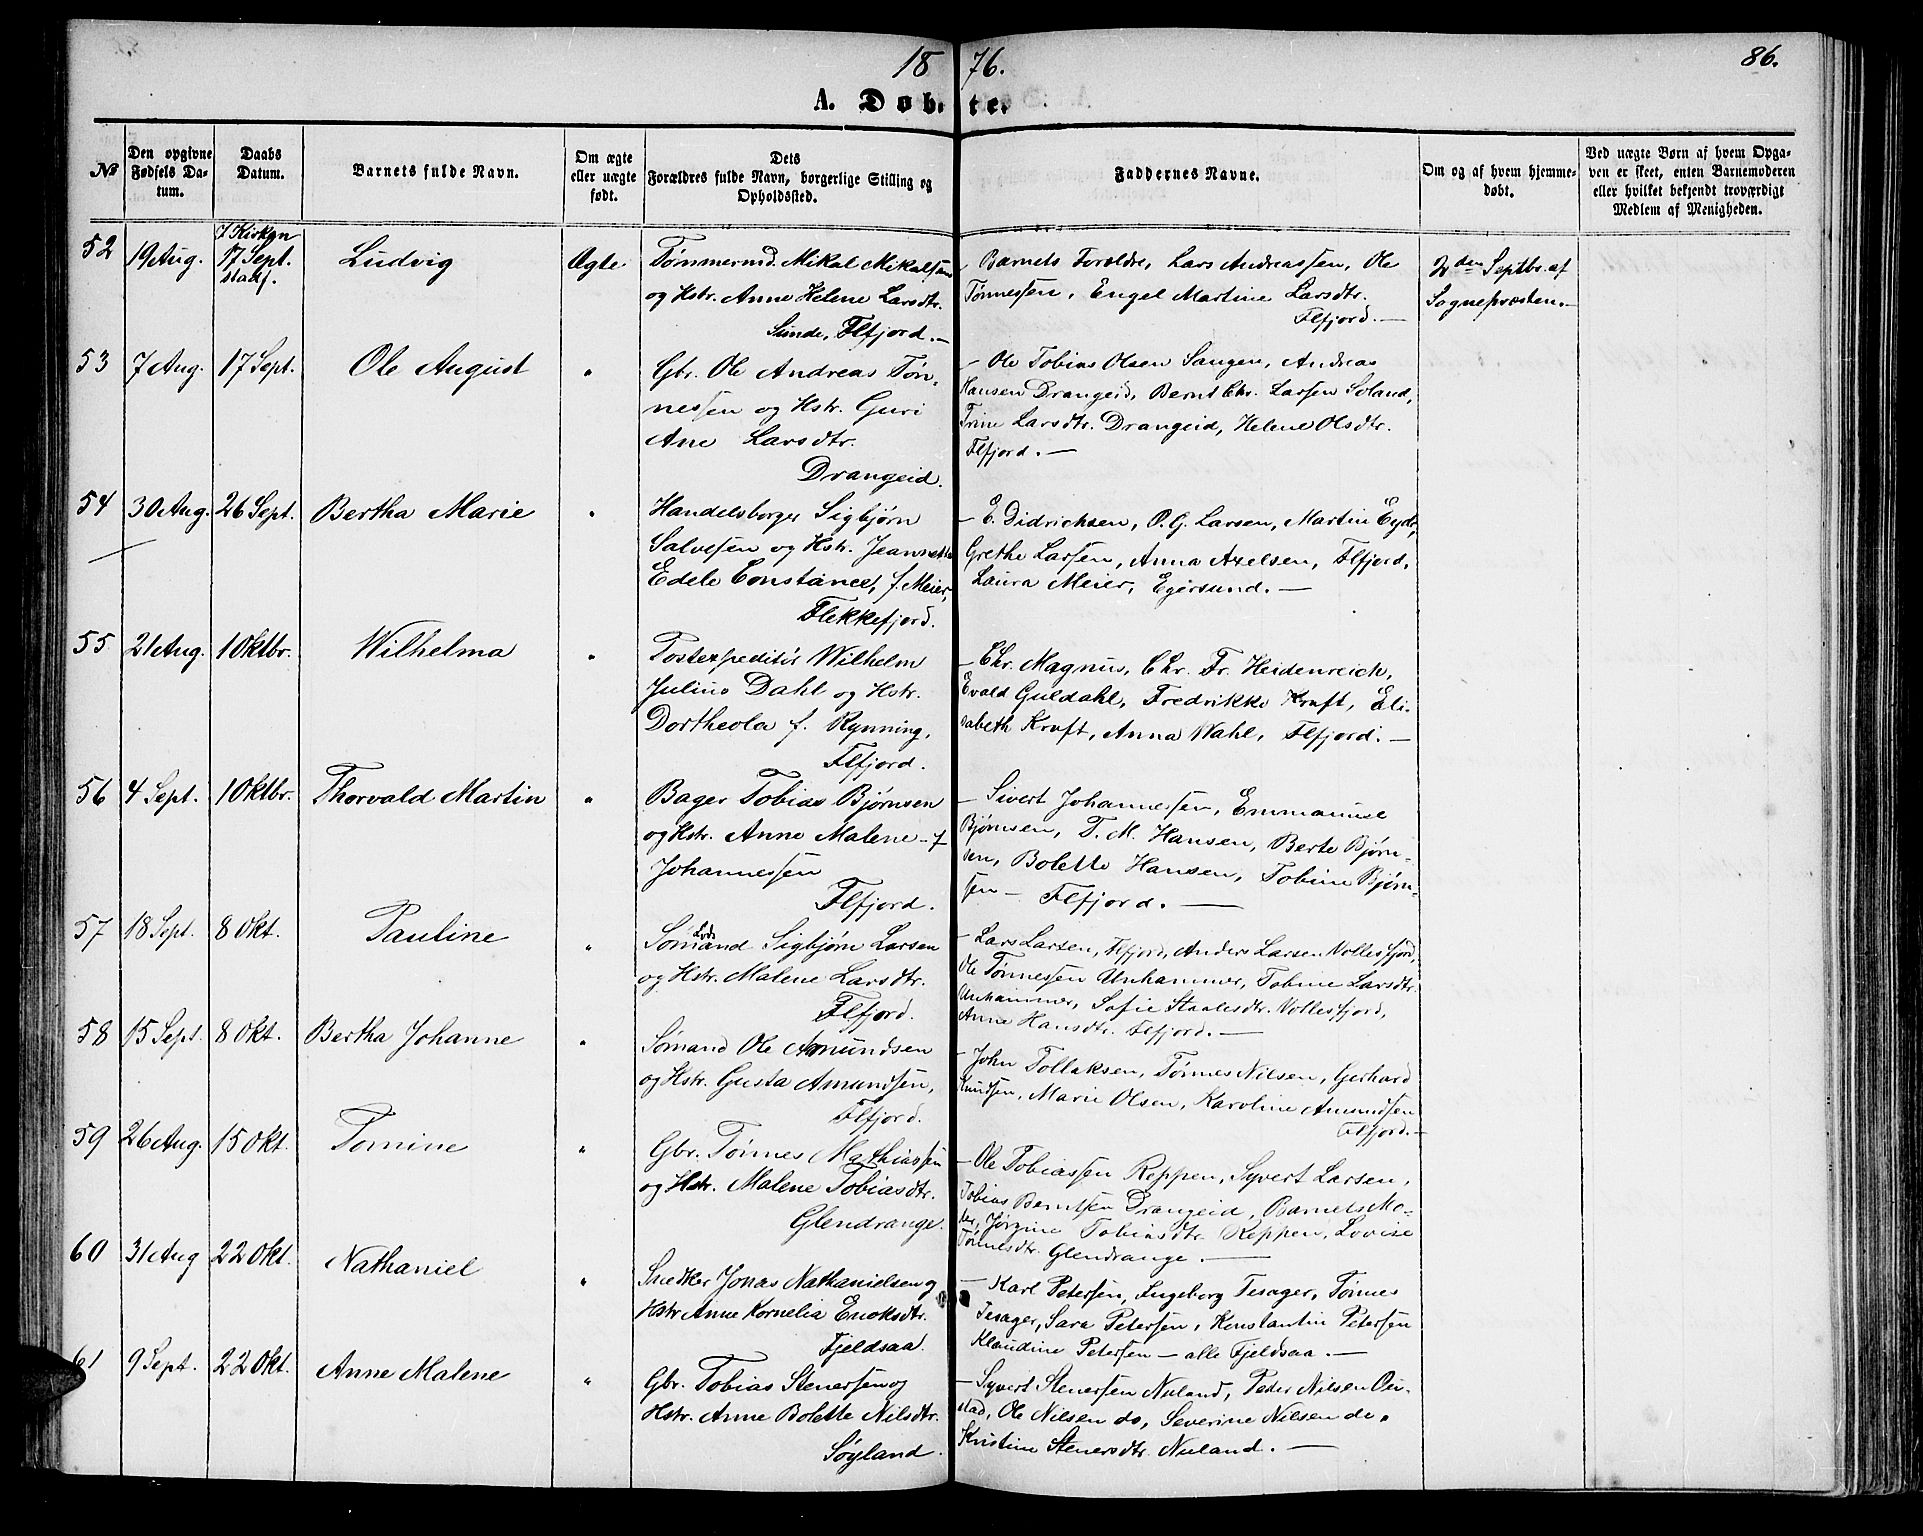 18 76.
86.
A. Døbte.
№
Den opgivne Fødsels Datum.
Daabs Datum.
Barnets fulde Navn.
Om ægte eller uægte født.
Dets Forældres fulde Navn, borgerlige Stilling og Opholdssted.
Faddernes Navne.
Om og af hvem hjemmedøbt.
Ved uægte Børn af hvem Opgaven er skeet, enten Barnemoderen eller hvilket bekjendt troværdigt Medlem af Menigheden.
52 19 Aug. I Kirken 17 Sept. stadf. Ludvig Ægte
Tømmermd. Mikal Mikalsen
og Hstr. Anne Helene Larsdtr.
Sunde, Flfjord. —
— Barnets Forældre, Lars Andreassen, Ole
Tønnessen, Engel Martine Larsdtr.
Flfjord. —
2den Septbr. af
Sognepræsten. —
53 7 Aug. 17 Sept. Ole August "
Gbr. Ole Andreas Tøn-
nessen og Hstr. Guri
Ane Larsdtr.
Drangeid.
— Ole Tobias Olsen Sangen, Andreas
Hansen Drangeid, Bernt Chr. Larsen Soland,
Trine Larsdtr. Drangeid, Helene Olsdtr.
Flfjord. —
54 30 Aug. 26 Sept. Bertha Marie "
Handelsborger Sigbjørn
Salvesen og Hstr. Jeannette
Edele Constance, f. Meier,
Flekkefjord.
— E. Didrichsen, O. G. Larsen, Martin Eyde,
Grethe Larsen, Anna Axelsen, Flfjord,
Laura Meier, Egersund. —
55 21 Aug. 1 Oktbr. Wilhelma "
Postexpeditør Wilhelm
Julius Dahl og Hstr.
Dortheola f. Rynning,
Flfjord.
— Chr. Magnus, Chr. Fr. Heidenreich,
Evald Guldahl, Fredrikke Kraft, Eli-
sabeth Kraft, Anna Wahl, Flfjord. —
56 4 Sept. 1 Oktbr. Thorvald Martin "
Bager Tobias Bjørnsen
og Hstr. Anne Malene f
Johannessen
Flfjord.
— Sivert Johannessen, Emmanuel
Bjørnsen, T. M. Hansen, Berte Bjørn-
sen, Bolette Hansen, Tobine Bjørn-
sen — Flfjord. —
57 18 Sept. 8 Okt. Pauline "
Sømand Lods Sigbjørn Larsen
og Hstr. Malene Larsdtr.
Flfjord.
— Lars Larsen, Flfjord, Anders Larsen Vollesfjord,
Ole Tønnessen Unhammer, Tobine Larsdtr.
Unhammer, Sofie Staalesdtr. Vollesfjord,
Anne Hansdtr. Flfjord. —
58 15 Sept. 8 Okt. Bertha Johanne "
Sømand Ole Amundsen
og Hstr. Gusta Amundsen,
Flfjord.
— John Tollaksen, Tønnes Nilsen, Gerhard
Knudsen, Marie Olsen, Karoline Amundsen
Flfjord. —
59 26 Aug. 15 Okt. Tomine "
Gbr. Tønnes Mathiassen
og Hstr. Malene Tobiasdtr.
Glendrange.
— Ole Tobiassen Reppen, Syvert Larsen,
Tobias Berntsen Drangeid, Barnets Mo-
der, Jørgine Tobiasdtr. Reppen, Lovise
Tønnesdtr. Glendrange. —
60 31 Aug 22 Okt. Nathaniel "
Snedker Jonas Nathanielsen og
Hstr Anne Kornelia Enoksdtr.
Fjeldsaa.
— Karl Petersen, Ingeborg Tesager, Tønnes
Tesager, Sara Petersen, Konstantin Petersen
Klaudine Petersen — alle Fjeldsaa. —
61 9 Sept. 22 Okt. Anne Malene "
Gbr. Tobias Stenersen og
Hstr. Anne Bolette Nilsdtr.
Søyland.
— Syvert Stenersen Nuland, Peder Nilsen Ou-
stad, Ole Nilsen do, Severine Nilsen do,
Kristine Stenersdtr. Nuland. —